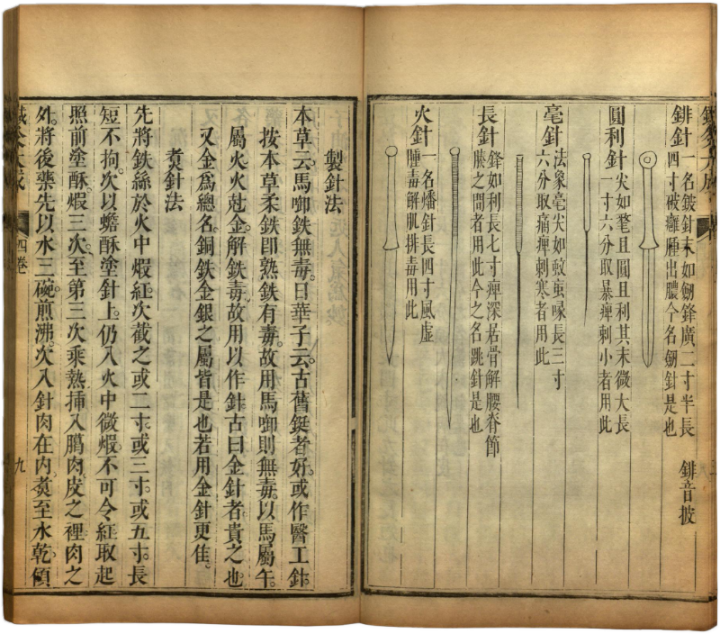 錍針
一名鈹針末如劔鋒廣二寸半長
四寸破癰腫出膿今名劔針是也
錍音披
圓利針
尖如氂且圓且利其末微大長
一寸六分取暴痺刺小者用此
毫針
法象毫尖如蚊䖟喙長三寸
六分取痛痺刺寒者用此
長針
鋒如利長七寸痺深居骨解腰脊節
腠之間者用此今之名跳針是也
火針
一名燔針長四寸風虛
腫毒解肌排毒用此
製針法
本草云馬啣鉄無毒。日華子云。古舊鋌者好。或作醫工針。
按本草柔鉄即熟鉄有毒。故用馬啣則無毒。以馬屬午。
屬火。火尅金。解鉄毒。故用以作針。古曰金針者貴之也。
又金爲總名。銅鉄金銀之屬皆是也。若用金針更佳。
煑針法
先將鉄絲於火中煆紅。次截之或二寸。或三寸。或五寸。長
短不拘。次以蟾酥塗針上。仍入火中微煆。不可令紅。取起
照前塗酥煆三次。至第三次乘熱插入臈肉皮之裡肉之
外。將後藥先以水三碗煎沸。次入針肉在内煑至水乾。傾
鍼灸大成
四卷
九